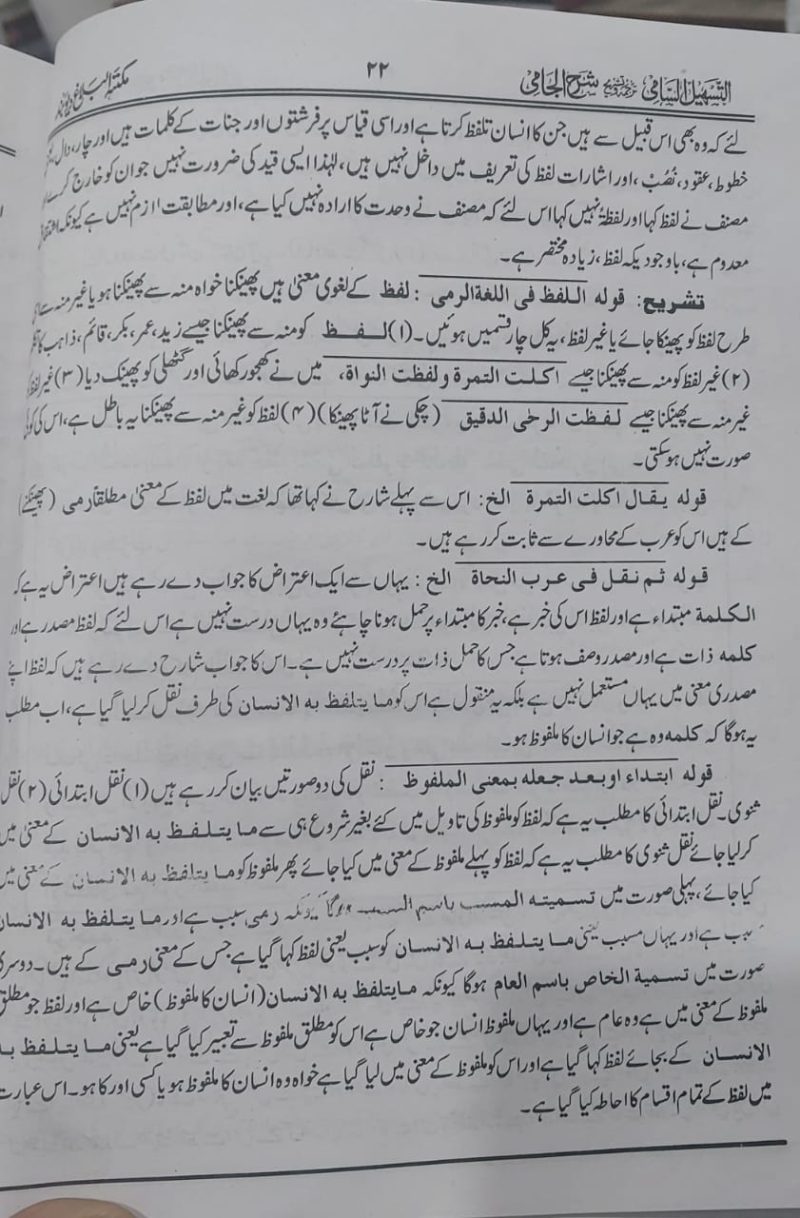 التسہیل السامی شرح الجامی ۲۲ مکتبہ البلاغ دیوبند
لئے کہ وہ بھی اس قبیل سے ہیں جن کا انسان تلفظ کرتا ہے اور اسی قیاس پر فرشتوں اور جنات کے کلمات ہیں اور چار، دال
خطوط، عقود، نُصُبْ، اور اشارات لفظ کی تعریف میں داخل نہیں ہیں، لہٰذا ایسی قید کی ضرورت نہیں جو ان کو خارج کرے
مصنف نے لفظ کہا اور لفظۃٌ نہیں کہا اس لئے کہ مصنف نے وحدت کا ارادہ نہیں کیا ہے، اور مطابقت لازم نہیں ہے کیونکہ
معدوم ہے، باوجودیکہ لفظ، زیادہ مختصر ہے۔
تشریح: قولہ اللفظ فی اللغة الرمی: لفظ کے لغوی معنیٰ ہیں پھینکنا خواہ منہ سے پھینکنا ہو یا غیر منہ سے
طرح لفظ کو پھینکا جائے یا غیر لفظ، یہ کل چار قسمیں ہوئیں۔ (۱) لفظ کو منہ سے پھینکنا جیسے زید، عمر، بکر، قائم، ذاہب کا
(۲) غیر لفظ کو منہ سے پھینکنا جیسے اکلت التمرة ولفظت النواة، میں نے کھجور کھائی اور گٹھلی کو پھینک دیا (۳) غیر لفظ
غیر منہ سے پھینکنا جیسے لفظت الرحٰی الدقیق (چکی نے آٹا پھینکا) (۴) لفظ کو غیر منہ سے پھینکنا یہ باطل ہے، اس کی کوئی
صورت نہیں ہو سکتی۔
قولہ یقال اکلت التمرة الخ: اس سے پہلے شارح نے کہا تھا کہ لغت میں لفظ کے معنیٰ مطلقاً رمی (پھینکنے)
کے ہیں اس کو عرب کے محاورے سے ثابت کر رہے ہیں۔
قولہ ثم نقل فی عرب النحاة الخ: یہاں سے ایک اعتراض کا جواب دے رہے ہیں اعتراض یہ ہے کہ
الکلمة مبتداء ہے اور لفظ اس کی خبر ہے، خبر کا مبتداء پر حمل ہونا چاہئے وہ یہاں درست نہیں ہے اس لئے کہ لفظ مصدر ہے اور
کلمہ ذات ہے اور مصدر وصف ہوتا ہے جس کا حمل ذات پر درست نہیں ہے۔ اس کا جواب شارح دے رہے ہیں کہ لفظ اپنے
مصدری معنیٰ میں یہاں مستعمل نہیں ہے بلکہ یہ منقول ہے اس کو ما یتلفظ به الانسان کی طرف نقل کر لیا گیا ہے، اب مطلب
یہ ہو گا کہ کلمہ وہ ہے جو انسان کا ملفوظ ہو۔
قولہ ابتداء اوبعد جعله بمعنی الملفوظ: نقل کی دو صورتیں بیان کر رہے ہیں (۱) نقل ابتدائی (۲) نقل
ثنوی۔ نقل ابتدائی کا مطلب یہ ہے کہ لفظ کو ملفوظ کی تاویل میں کئے بغیر شروع ہی سے ما یتلفظ به الانسان کے معنیٰ میں
کر لیا جائے نقل ثنوی کا مطلب یہ ہے کہ لفظ کو پہلے ملفوظ کے معنیٰ میں کیا جائے پھر ملفوظ کو ما یتلفظ به الانسان کے معنیٰ میں
کیا جائے، پہلی صورت میں تسمیته المسبب باسم السبب ہوگا کیونکہ رمی سبب ہے اور ما یتلفظ به الانسان
سبب ہے اور یہاں مسبب یعنی ما یتلفظ به الانسان کو سبب یعنی لفظ کہا گیا ہے جس کے معنیٰ رمی کے ہیں۔ دوسری
صورت میں تسمیة الخاص باسم العام ہو گا کیونکہ ما یتلفظ به الانسان (انسان کا ملفوظ) خاص ہے اور لفظ جو مطلق
ملفوظ کے معنیٰ میں ہے وہ عام ہے اور یہاں ملفوظ انسان جو خاص ہے اس کو مطلق ملفوظ سے تعبیر کیا گیا ہے یعنی ما یتلفظ به
الانسان کے بجائے لفظ کہا گیا ہے اور اس کو ملفوظ کے معنیٰ میں لیا گیا ہے خواہ وہ انسان کا ملفوظ ہو یا کسی اور کا ہو۔ اس عبارت
میں لفظ کے تمام اقسام کا احاطہ کیا گیا ہے۔